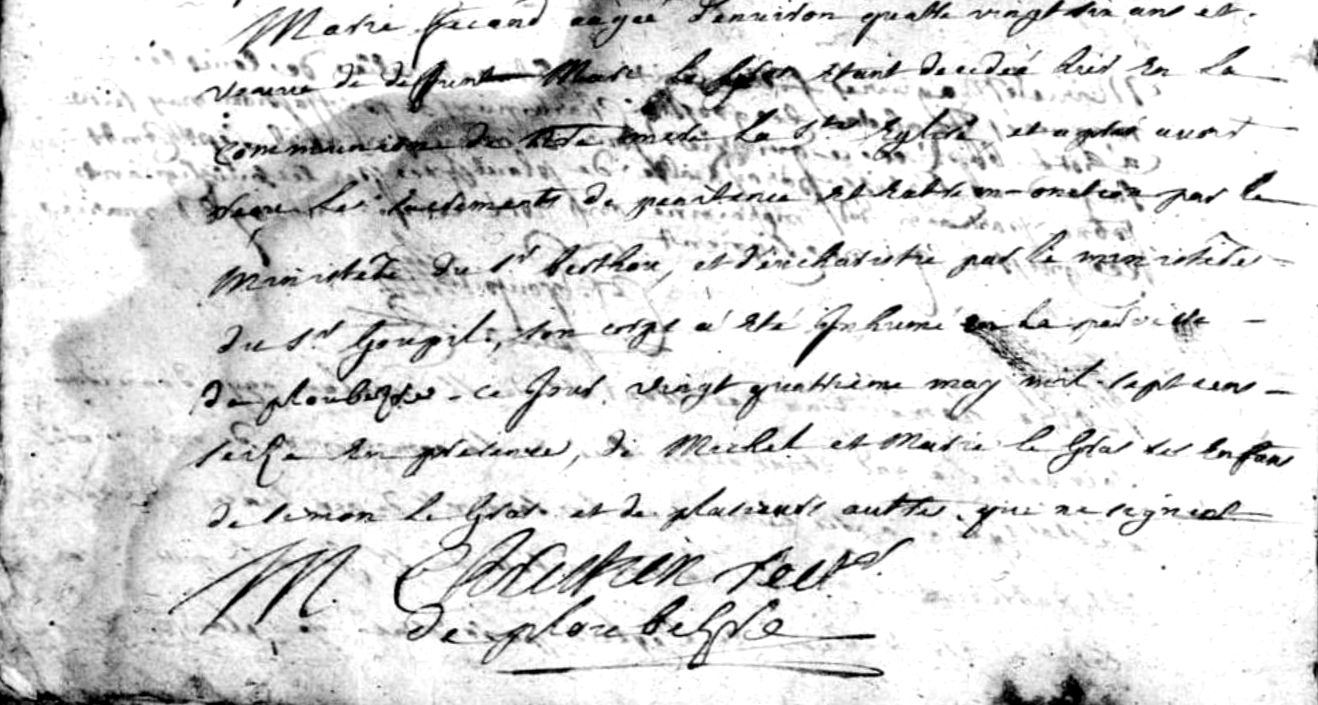 Marie Fecand aagée d'environ quatre vingt six ans et
veuve de deffunt Marc Le Gras etant decedeé hier en la
communion de notre mere la Ste Eglise, et apres avoir
reçu les sacrements de penitence et extreme-onction par le
ministere du Sr Berthou, et d'eucharistie par le ministere
du Sr Goupil, son corps a été Inhumé en la paroisse
de ploubezre ce Jour vingt quatrieme may mil sept cens
seize en presence, de Michel et Marie le Gras ses Enfans
de Simon le Gras et de plusieurs autres que ne signent
M. rectr
de ploubezre